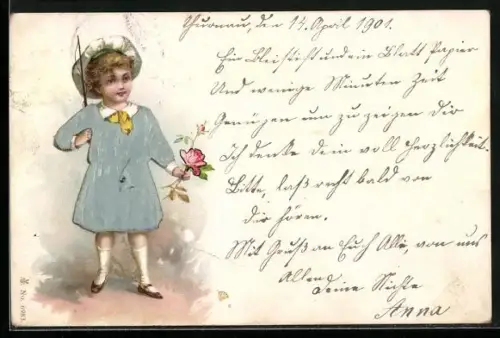 Thurnau, den 14. April 1901.
Ein Bleistift und ein Blatt Papier
Und wenige Minuten Zeit
Genügen um zu zeigen dir
Ich denke dein voll Herzlichkeit.
Bitte, laß recht bald von
dir hören.
Mit Gruß an Euch Alle, von uns
Allen
Deine Nichte
Anna